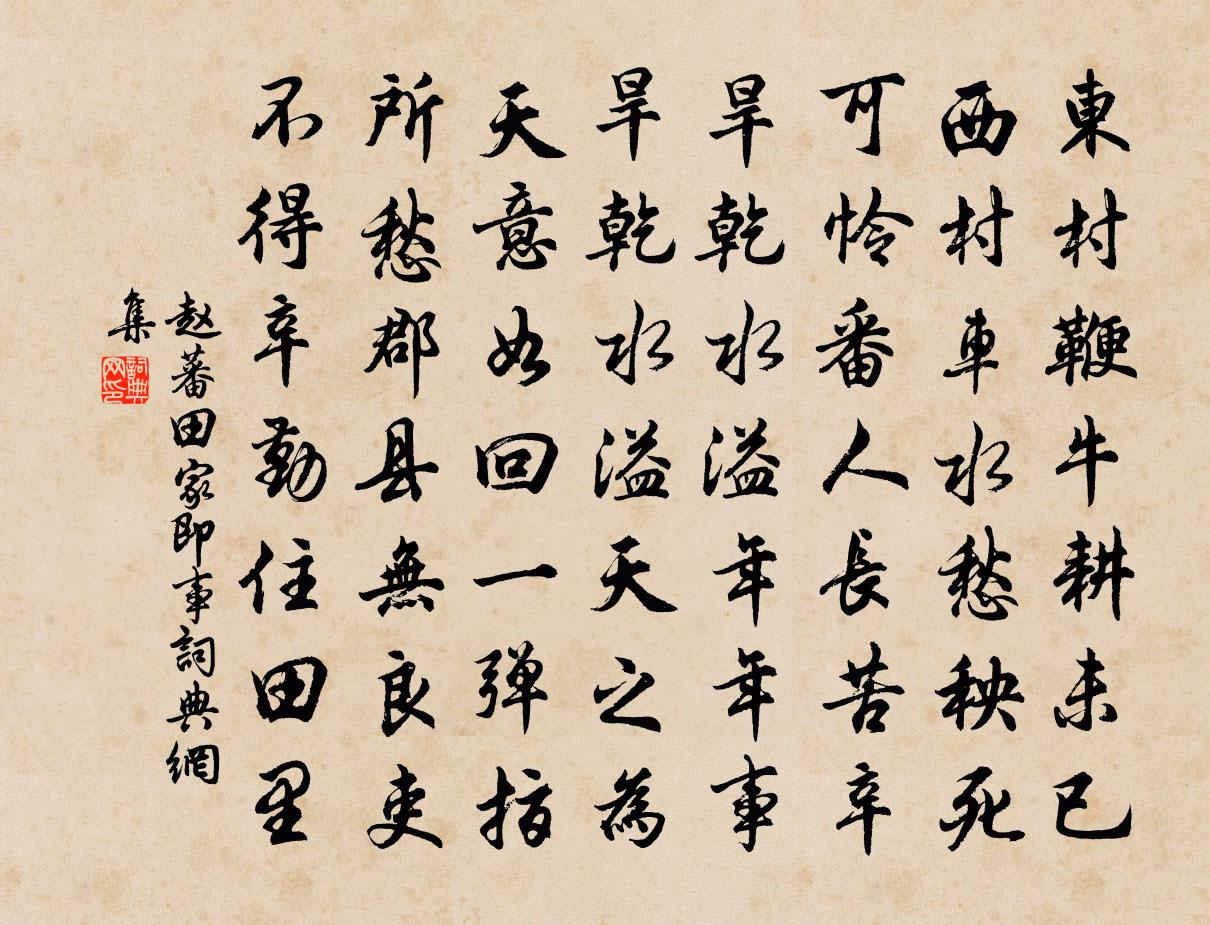 東村鞭牛耕未已
西村車水愁秧死
可怜番人長苦辛
旱乾水溢年年事
旱乾水溢天之為
天意如回一弹指
所愁郡县無良吏
不得辛勤住田里
赵蕃田家即事詞典網
集
詞典
网印